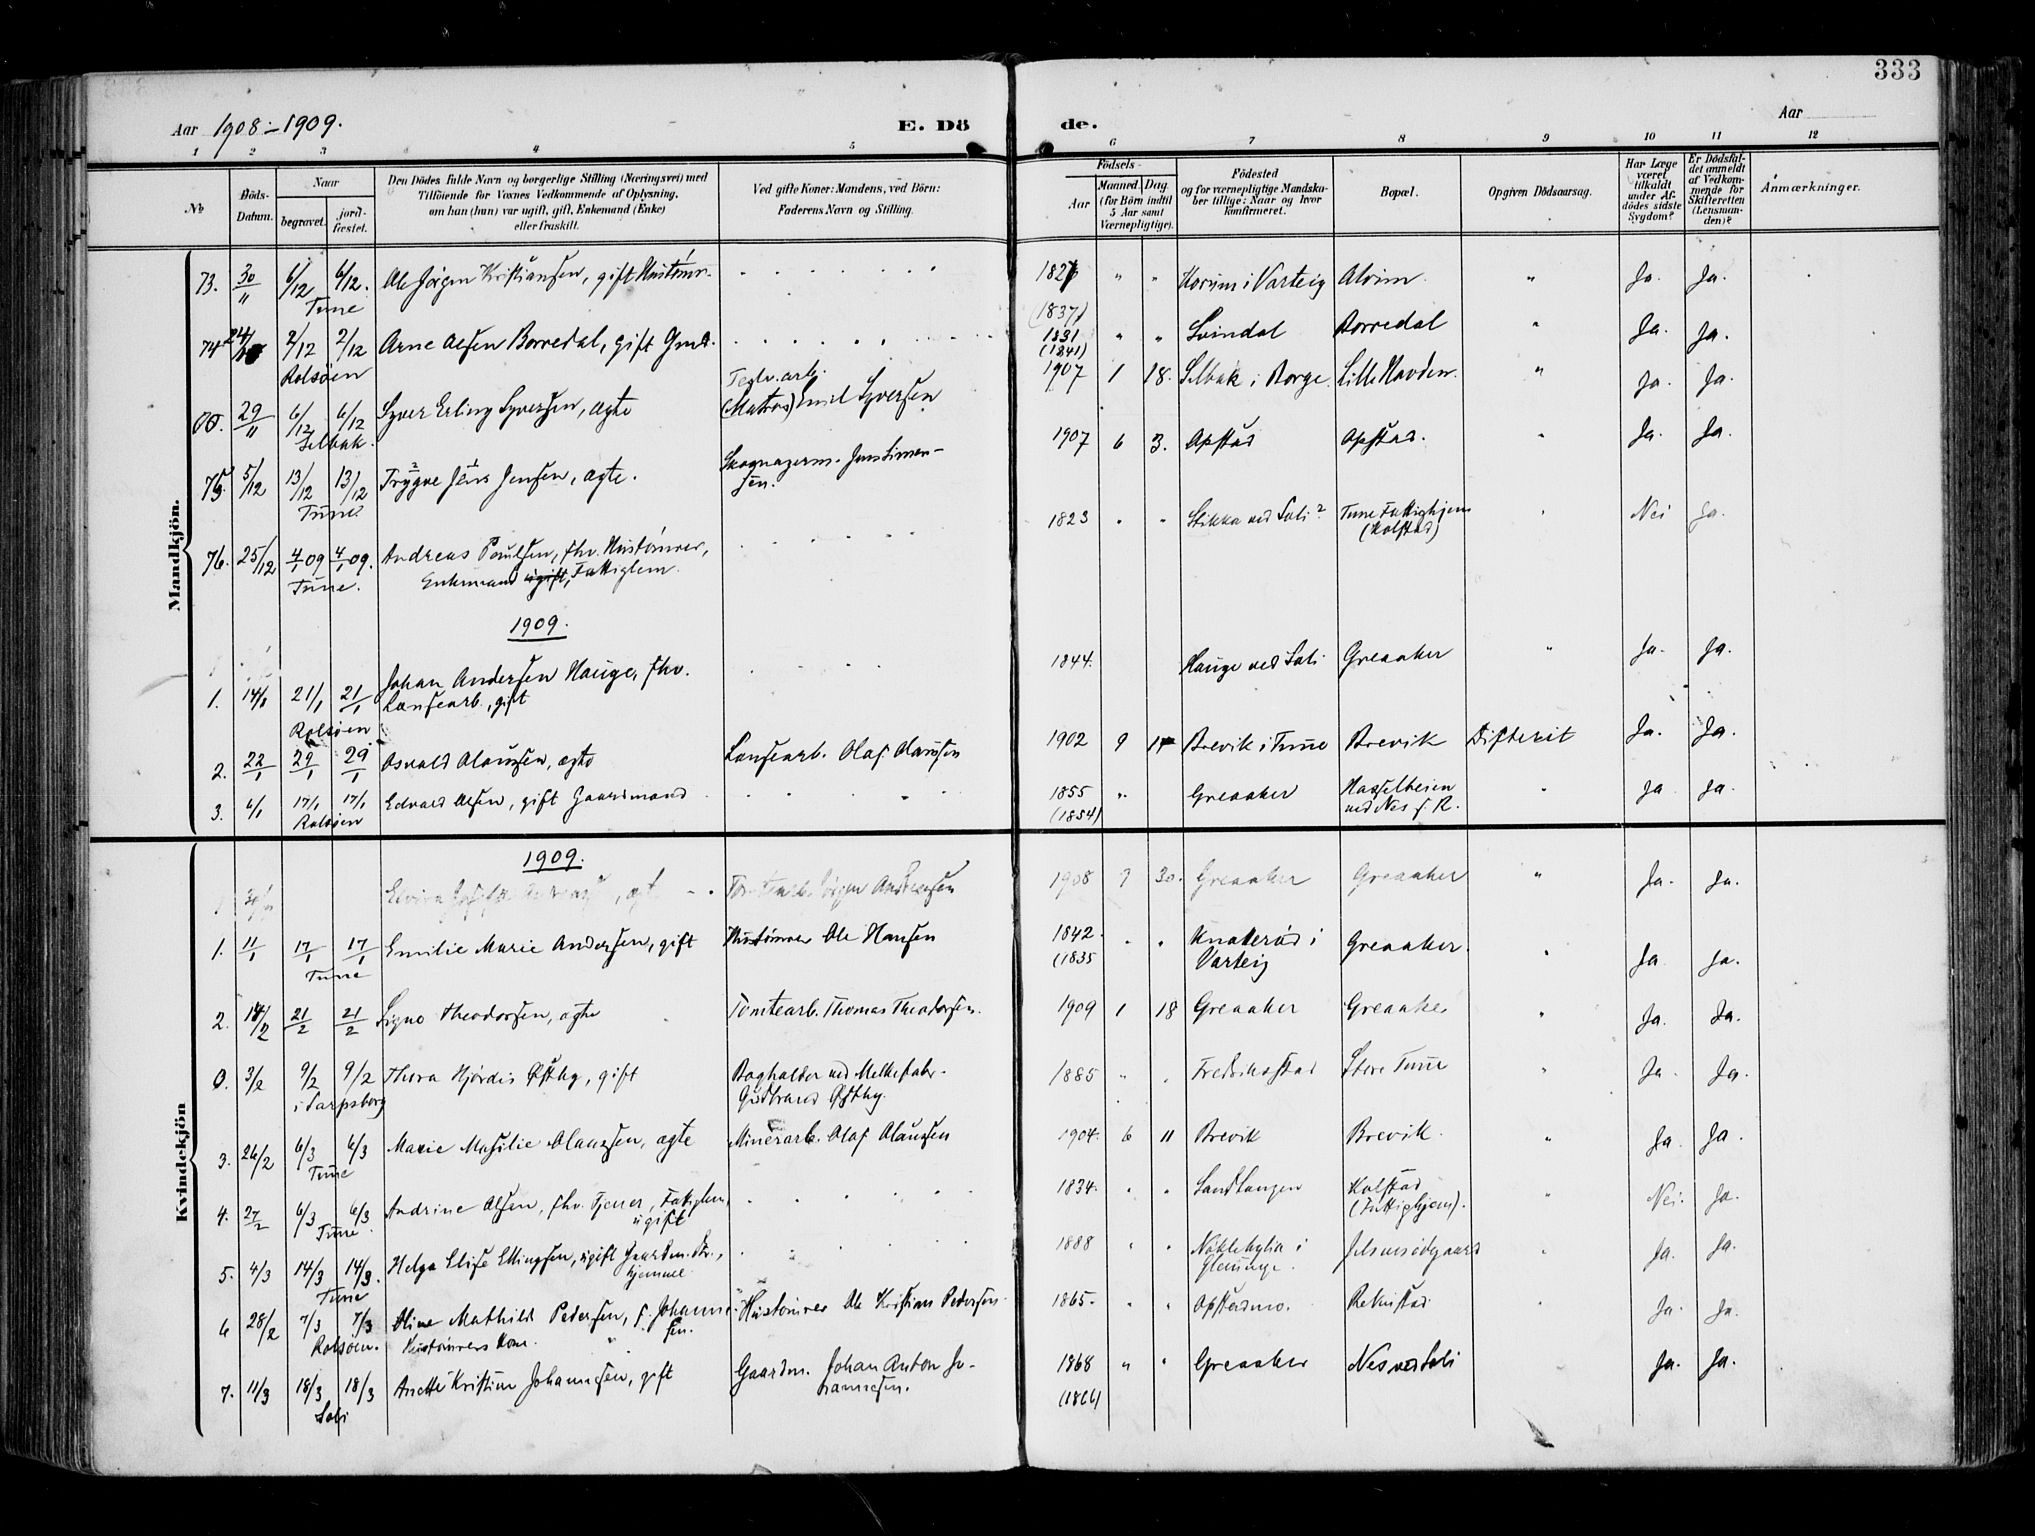 333
Aar 1908–1909.
E. Dö
de.
Aar
1 2 3 4 5 6 7 8 9 10 11 12
No
Döds-
Datum.
Naar
begravet.
jord-
fæstet.
Den Dödes fulde Navn og borgerlige Stilling (Næringsvei) med
Tilföiende for Voxnes Vedkommende af Oplysning,
om han (hun) var ugift, gift, Enkemand (Enke)
eller fraskilt.
Ved gifte Koner: Mandens, ved Börn:
Faderens Navn og Stilling.
Födsels-
Aar
Maaned. Dag.
(for Börn indtil
5 Aar samt
Værnepligtige).
Födested
og for værnepligtige Mandska-
ber tillige: Naar og hvor
konfirmeret.
Bopæl.
Opgiven Dödsaarsag.
Har Læge
været
tilkaldt
under Af-
dödes sidste
Sygdom?
Er Dödsfal-
det anmeldt
af Vedkom-
mende for
Skifteretten
(Lensman-
den)?
Anmærkninger.
Mandkjön.
73. 30/11 6/12 6/12. Ole Jörgen Kristiansen, gift Hustömr. 182 " " Horum i Varteig Alvim. " Ja. Ja.
Tune
(1837)
74 2/12 2/12 Arne Olsen Borredal, gift Gmd. 1831 " " Svindal Borredal " Ja. Ja.
(1841)
Rolsöen
Teglv.arb.
00. 29/11 6/12 6/12 Syver Erling Syversen, ægte (Matros) Emil Syversen 1907 1 18. Selbak i Borge. Lille Havden. " Ja. Ja.
Selbak.
75. 5/12 13/12 13/12 Trygve Jens Jensen, ægte. Skognagerm. Jens Simen-
sen. 1907 6 3. Opstad Opstad. " Ja. Ja.
Tune.
76. 25/12 4/1 09 4/1 09. Andreas Poulsen, fhv. Hustömrer, 1823 " " Stikka ved Soli? Tune Fattighjem
(Kolstad) Nei Ja.
Tune. Enkemand ugift, Fattiglem.
1909.
1. 14/1 21/1 21/1 Johan Andersen Hauge, fhv.
Lænsearb., gift 1844. Hauge ved Soli Greaaker " Ja. Ja.
Rolsöen
2. 22/1 29/1 29/1 Osvald Olaussen, ægte Lænsearb. Olaf Olaussen 1902 9 14 Brevik i Tune Brevik Difterit Ja. Ja.
3. 6/1 17/1 17/1 Edvard Olsen, gift Gaardmand 1855 " Greaaker Hasselheien
ved Nes f. R. " Ja Ja.
Rolsöen (1854)
Kvindekjön
1909.
Elvira , ægte Jörgen Andreasen 1908 30. Greaaker Greaaker " Ja. Ja.
1. 11/1 17/1 17/1 Emilie Marie Andersen, gift Hustömrer Ole Hansen 1842. " " Knatteröd i
Varteig Greaaker. " Ja. Ja.
Tune (1835
2. 14/2 21/2 21/2 Signe Theodorsen, ægte Tomtearb. Thomas Theodorsen. 1909 1 18 Greaaker Greaaker " Ja. Ja.
0. 3/2 9/2 9/2 Thora Hjördis Østby, gift Bogholder ved Melkefabr.
Gudbrand Østby. 1885 " " Fredrikstad Store Tune " Ja. Ja.
i Sarpsborg
3. 26/2 6/3 6/3 Marie Masilie Olaussen, ægte Minerarb. Olaf Olaussen 1904. 6 11 Brevik Brevik. " Ja. Ja.
Tune
4. 27/2 6/3 6/3 Andrine Olsen, fhv. Tjener, Fattiglem,
ugift 1834. " " Sandtangen Kolstad
(Fattighjem). " Nei. Ja.
Tune.
5. 4/3 14/3 14/3. Helga Elise Ellingsen, ugift Gaardm. dtr.,
hjemme 1888 " " Nöklebylia i
Glemmige. " Ja. Ja.
Tune
6 28/2 7/3 7/3 Oline Mathild Pedersen, f. Johanne-
sen. Hustömrer Ole Kristian Pedersen 1865. " " Opstadmo. Rekustad " Ja. Ja.
Rolsöen. Hustömrers Kone.
7. 11/3 18/3 18/3 Anette Kristine Johannesen, gift Gaardm. Johan Anton Jo-
hannesen. 1868 " " Greaaker Nes ved Soli Ja. Ja.
Soli (1866)